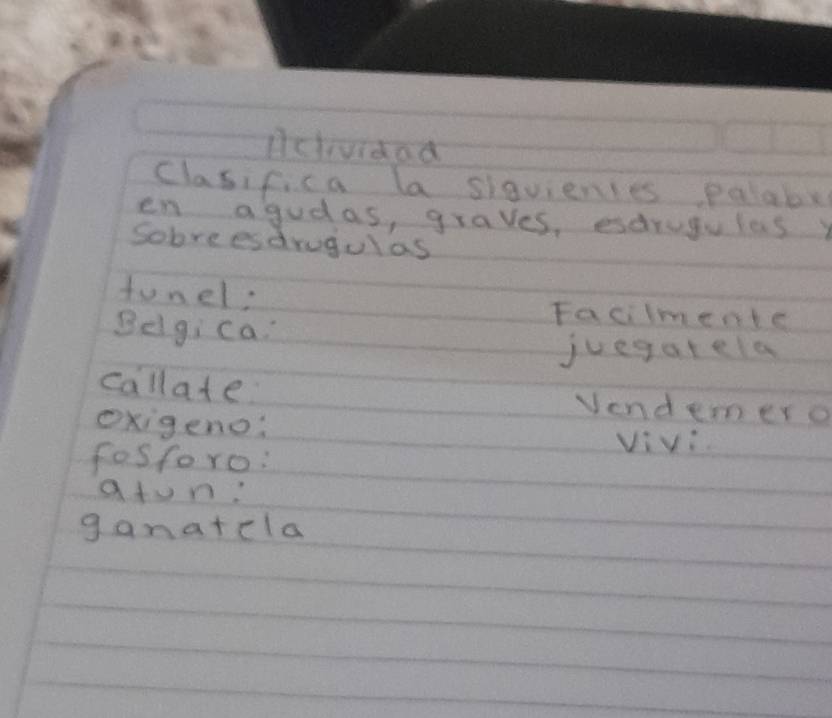 Actividad
Clasifica la siguientes palabr
en agudas, graves, esdrugulas y
Sobreesdrugulas
tunel:
Belgica:
callate:
oxigeno:
fosforo:
atun:
ganatela
Facilmente
juegatela
Vendemero
vivi.